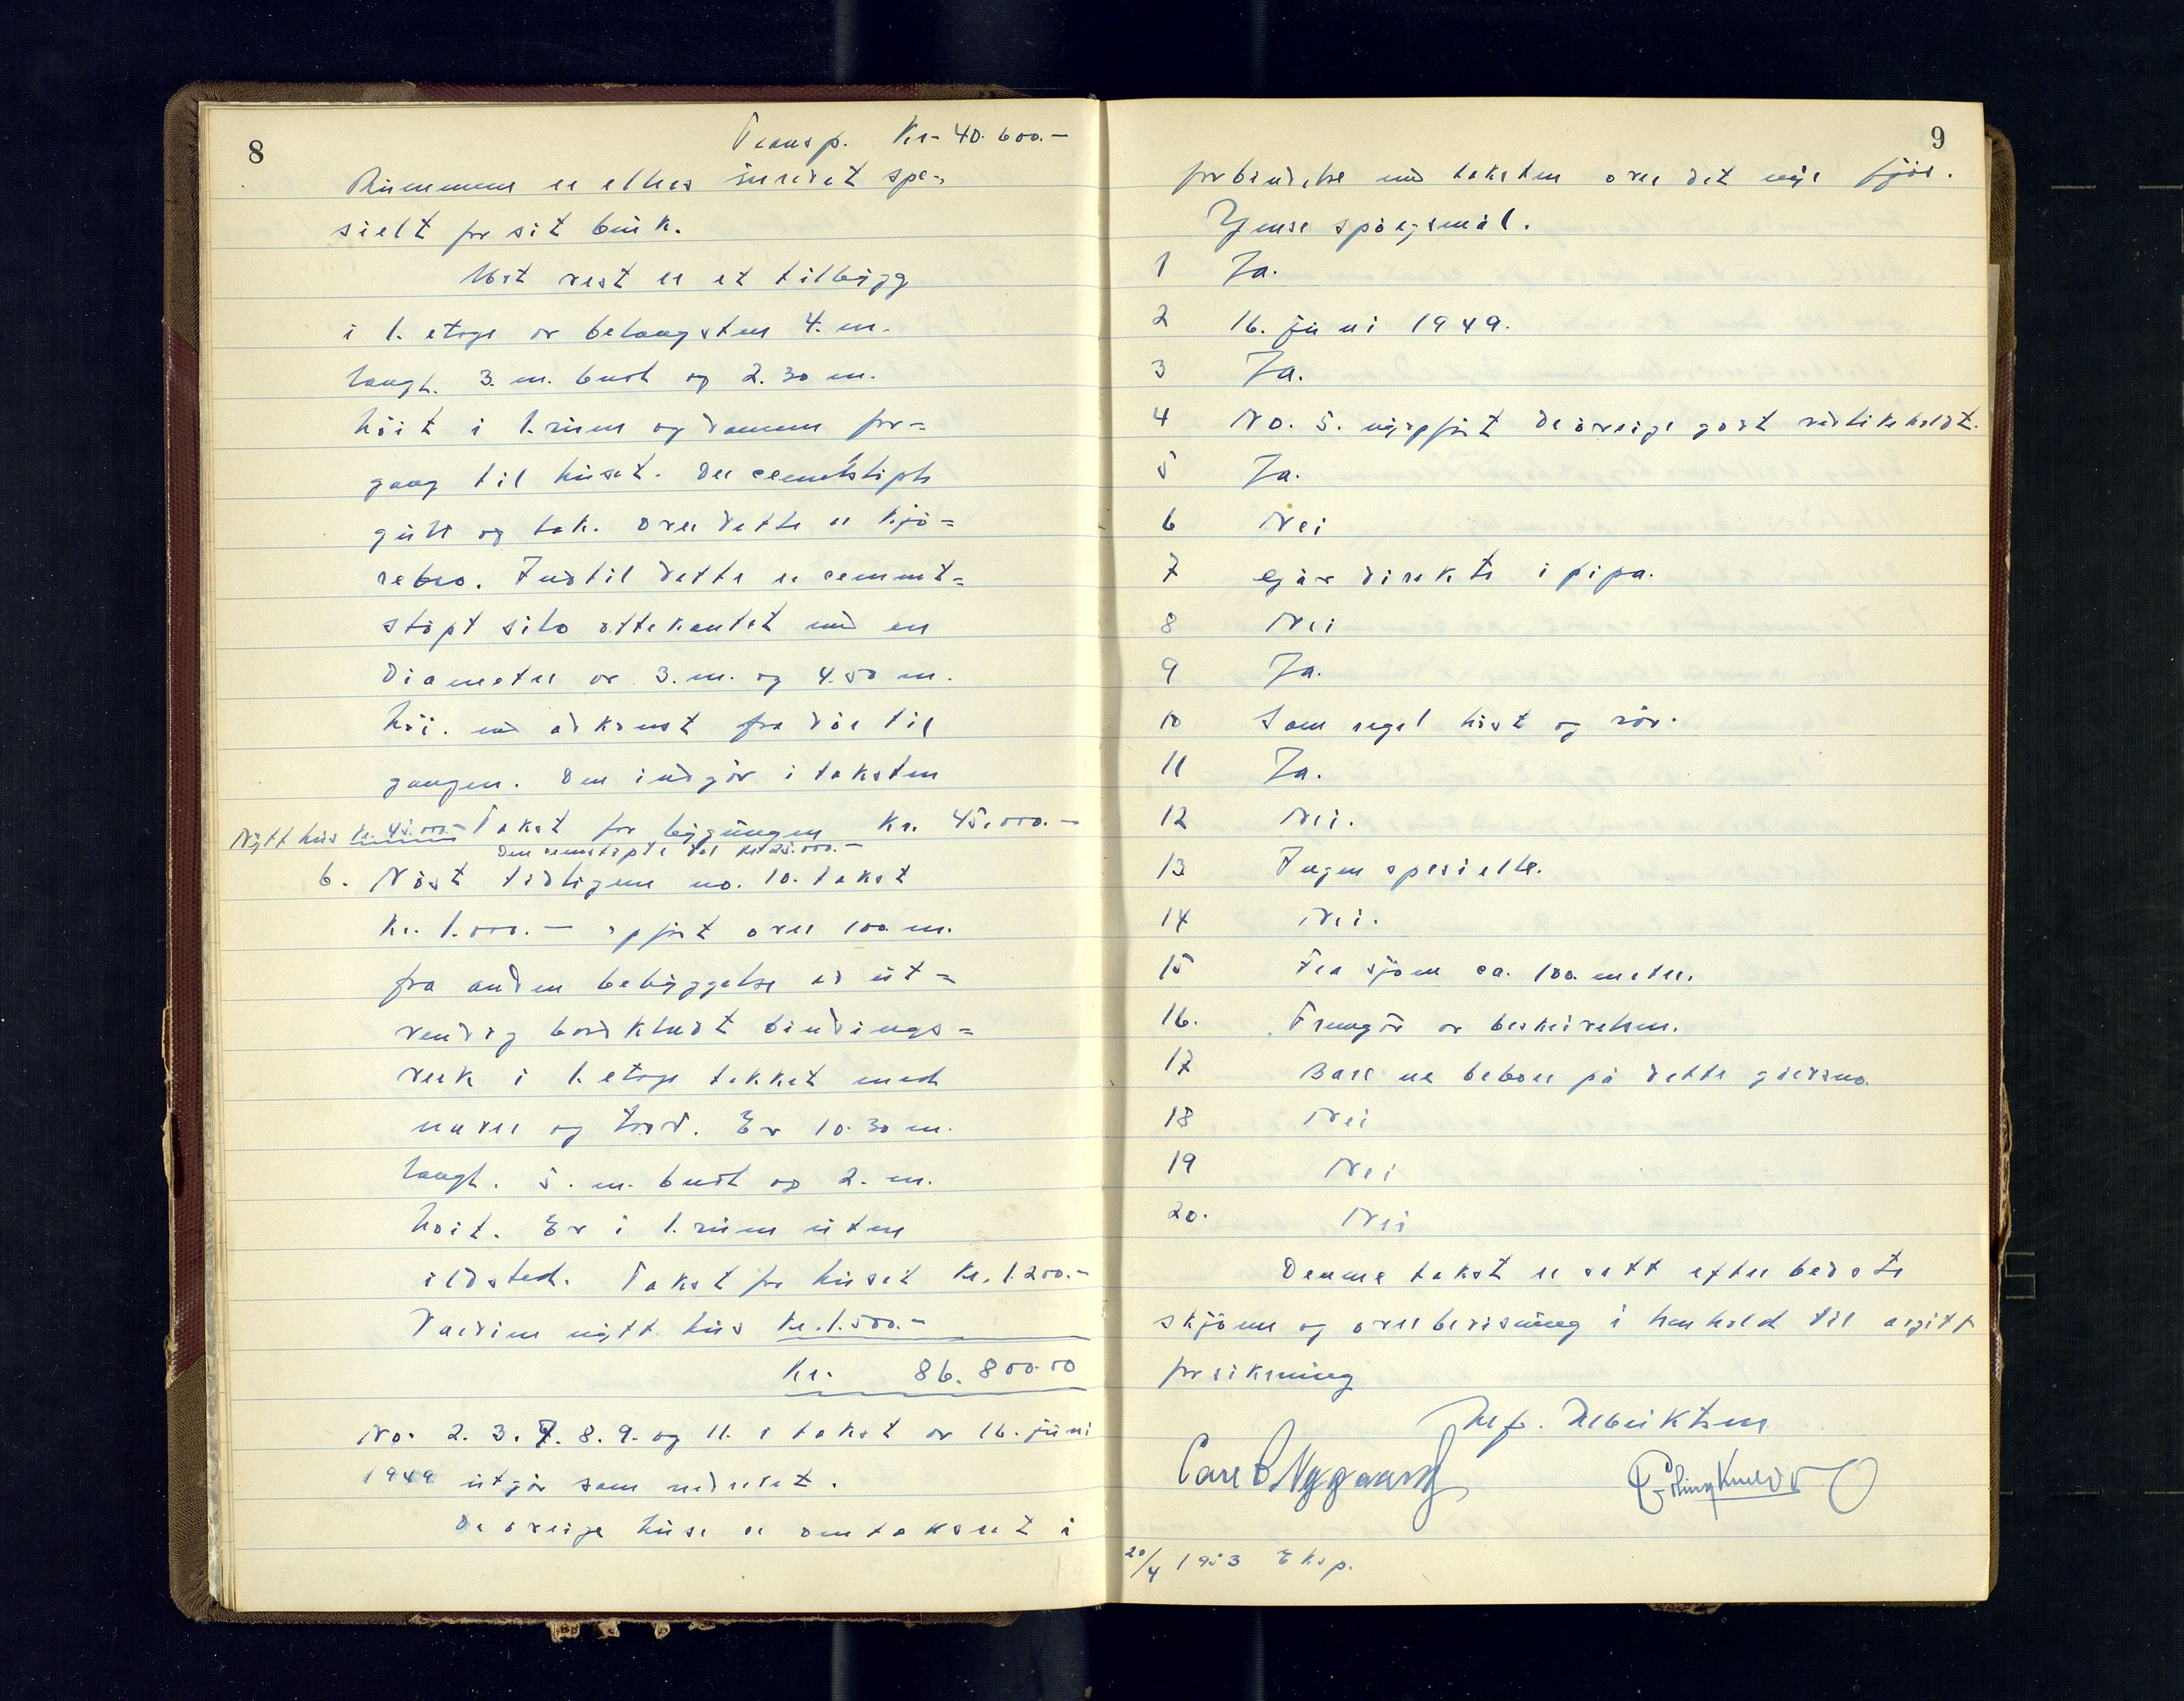 8
Transp. Kr- 40.600.-
Rummene er elles inredet spe-
sielt for sit bruk.
Mot vest er et tilbygg
i 1. etage av betongsten 4. m.
langt. 3. m. bredt og 2.30 m.
höit i 1. rum og danner for=
gang til huset. Der cementstöpte
gulv og tak. Over dette er kjö=
rebro. Indtil dette er cemmt=
stöpt silo ottekantet med en
Diameter av 3. m. og 4.50 m.
höi. med adkomst fra dör til
gangen. Den indgår i taksten
Nytt hus kr. 45.000.- Takst for bygningen Kr. 45.000.-
Den cemstöpte del kr. 25.000.-
6. Nöst tidligere no. 10. takst
Kr. 1.000.- opfört over 100 m.
fra anden bebyggelse er ut=
vendig bordkledt bindings=
verk i 1. etage tekket med
never og torv. Er 10.30 m.
langt. 5. m. bredt og 2. m.
höit. Er i 1. rum uten
ildsted. Takst for huset Kr. 1.200.-
Værdien nytt hus Kr. 1.500.-
Kr. 86.800.00
No. 2. 3. 7. 8. 9. og 11. i takst av 16. juni
1949 utgår som nedrevet.
De övrige huse er omtaksert i
9
forbindelse med taksten over det nye fjös.
Ymse spörgsmål.
1 Ja.
2 16. juni 1949.
3 Ja.
4 No. 5. nyopfört de övrige godt vedlikeholdt.
5 Ja.
6 Nei
7 Går direkte i pipa.
8 Nei
9 Ja.
10 Som regel høst og vår.
11 Ja.
12 Nei.
13 Ingen spesielle.
14 Nei.
15 Fra sjöen ca. 100. meter.
16. Fremgår av beskrivelsen.
17 Bare en beboer på dette gårdsno.
18 Nei
19 Nei
20. Nei
Denne takst er satt efter bedste
skjönn og overbevisning i henhold til avgitt
forsikring
Alf. Albriktsen
Carl B Nygaard Erling
20/4 1953 Eksp.